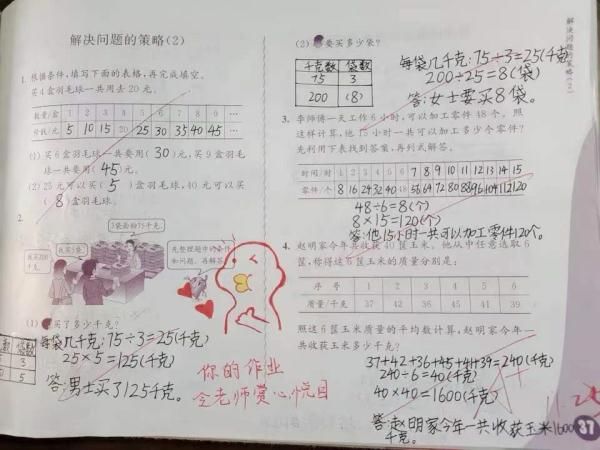 解决问题的策略(2)
1. 根据条件，填写下面的表格，再完成填空。
买4盒羽毛球一共用去20元。
数量/盒 1 2 3 4 5 6 7 8 9 …
价钱/元 5 10 15 20 25 30 35 40 45 …
(1) 买6盒羽毛球一共要用( 30 )元，买9盒羽毛
球一共要用( 45 )元。
(2) 25元可以买( 5 )盒羽毛球，40元可以买
( 8 )盒羽毛球。
2.
3袋面粉75千克。
我买5袋。
我买200
千克。
先整理题中的条件
和问题，再解答。
(1) 买了多少千克？
每袋几千克:75÷3=25(千克)
25×5=125(千克)
答:男士买了125千克。
数 袋数
3
0 5
你的作业
令老师赏心悦目
(2) 要买多少袋？
千克数 袋数
75 3
200 (8)
每袋几千克:75÷3=25(千克)
200÷25=8(袋)
答:女士要买8袋。
3. 李师傅一天工作6小时，可以加工零件48个。照
这样计算，他15小时一共可以加工多少个零件？
先利用下表找到答案，再列式解答。
时间/时 1 2 3 4 5 6 7 8 9 10 11 12 13 14 15
零件/个 8 16 24 32 40 48 56 64 72 80 88 96 104 112 120
48÷6=8(个)
8×15=120(个)
答:他15小时一共可以加工零件120个。
4. 赵明家今年共收获40筐玉米。他从中任意选取6
筐，称得这6筐玉米的质量分别是：
序 号 1 2 3 4 5 6
质量/千克 37 42 36 45 41 39
照这6筐玉米质量的平均数计算，赵明家今年一
共收获玉米多少千克？
37+42+36+45+41+39=240(千克)
240÷6=40(千克)
40×40=1600(千克)
A+
答:赵明家今年一共收获玉米1600
千克。
解决问题的策略(2)
37